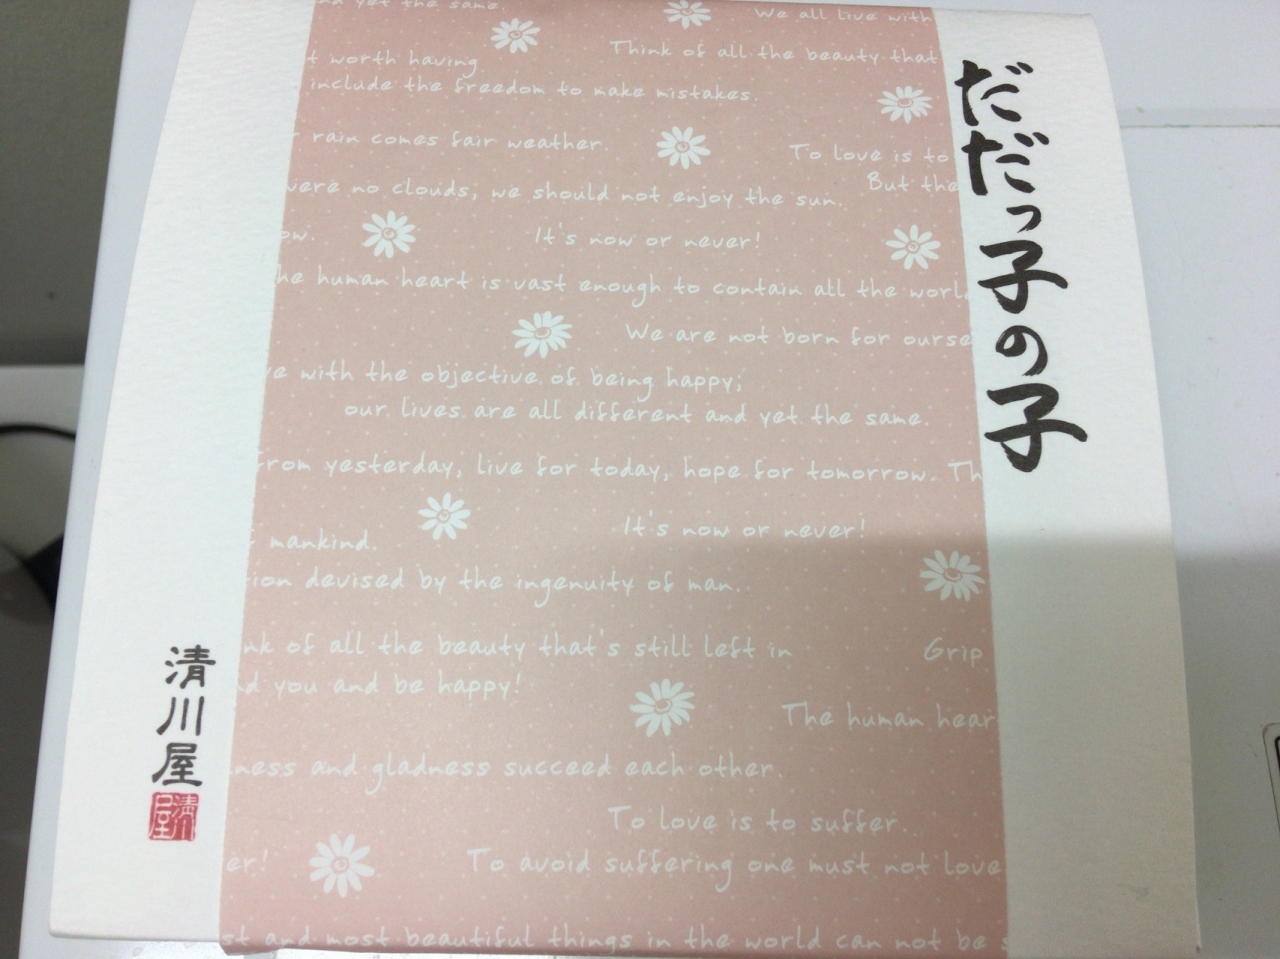 だだっ子の子
nd yet the same.
We all live with
Think of all the beauty that
t worth having
include the freedom to make mistakes.
rain comes fair weather.
To love is to
But the
were no clouds, we should not enjoy the sun.
ow.
It's now or never!
he human heart is vast enough to contain all the world
We are not born for ourse
ve with the objective of being happy;
our lives are all different and yet the same.
from yesterday, live for today, hope for tomorrow. Th
It's now or never!
f mankind.
tion devised by the ingenuity of man.
nk of all the beauty that's still left in
Grip
d you and be happy!
The human hear
ness and gladness succeed each other.
To love is to suffer.
er!
To avoid suffering one must not love
st and most beautiful things in the world can not be s
清川屋
清川屋